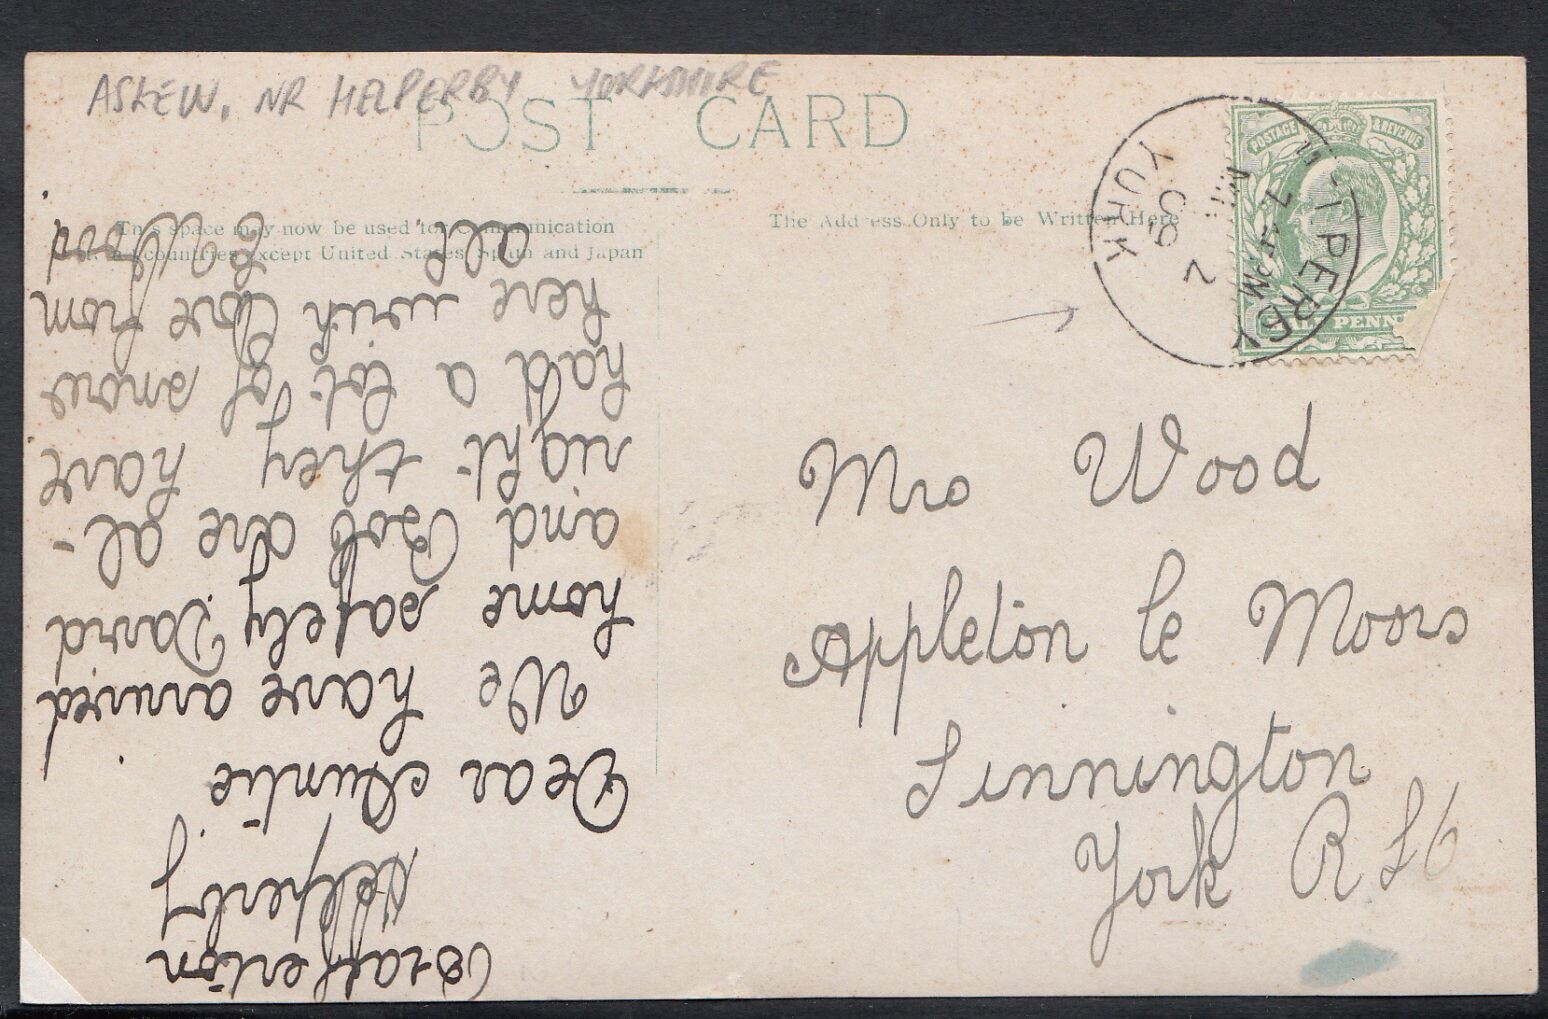 ASKEW, NR HELPERBY YORKSHIRE
POST CARD
This space may now be used for communication
countries except United States, Spain and Japan
The Address Only to be Written Here
POSTAGE & REVENUE
PENNY
HELPERBY
YORK
7 PM
MR 2
09
Mrs Wood
Appleton le Moors
Sinnington
York R S O
Brafferton
Helperby
Dear Auntie
We have arrived
home safely David
and Bob are al-
right they have
had a lot of snow
here with love from
all